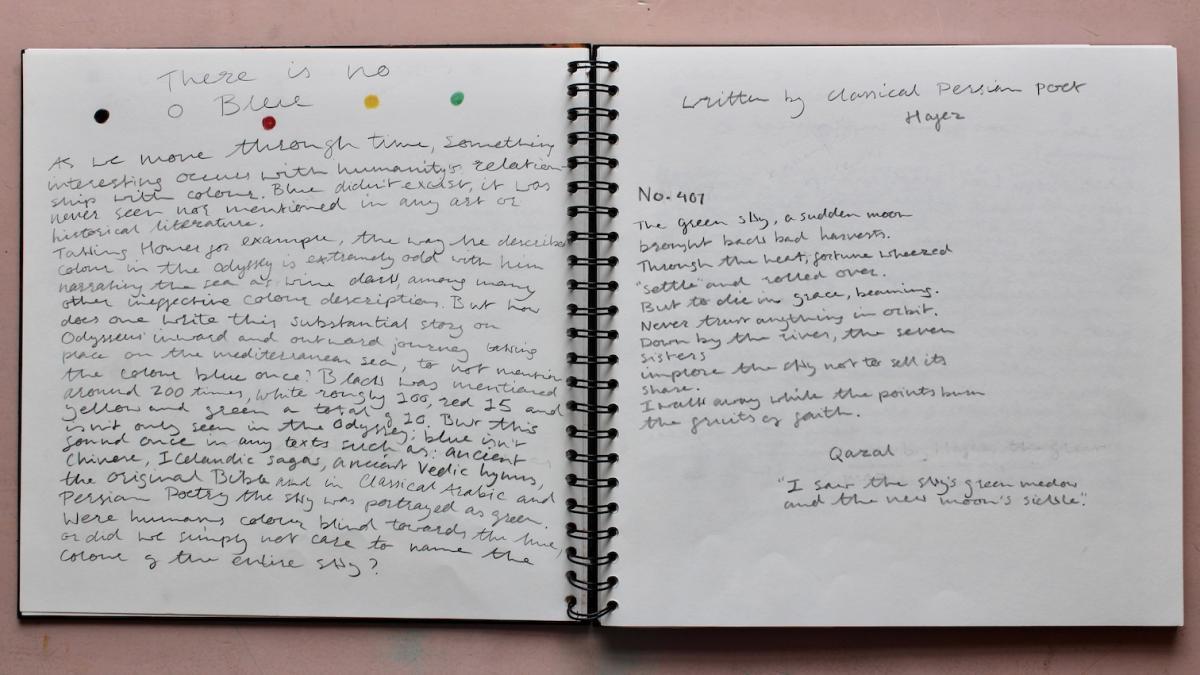 There is no
O Blue
As we move through time, something
interesting occurs with humanity's relation-
ship with colour. Blue didn't excist, it was
never seen nor mentioned in any art or
historical literature.
Talking Homer for example, the way he describes
colour in the odyssey is extremely odd with him
narrating the sea as wine dark, among many
other ineffective colour descriptions. But how
does one write this substantial story on
Odysseus' inward and outward journey taking
place on the mediterranean sea, to not mention
the colour blue once? Black was mentioned
around 200 times, white roughly 100, red 15 and
yellow and green a total of 10. But this
isn't only seen in the Odyssey; blue isn't
found once in any texts such as: ancient
Chinese, Icelandic sagas, ancient Vedic hymns,
the original Bible and in Classical Arabic and
Persian Poetry the sky was portrayed as green.
Were humans colour blind towards the hue,
or did we simply not care to name the
colour of the entire sky?
Written by Classical Persian poet
Hafez
No. 407
The green sky, a sudden moon
brought back bad harvests.
Through the heat, fortune wheezed
"settle" and rolled over.
But to die in grace, beaming.
Never trust anything in orbit.
Down by the river, the seven
sisters
implore the sky not to sell its
share.
I walk away while the points burn
the fruits of faith.
Qazal
"I saw the sky's green medow
and the new moon's sickle".